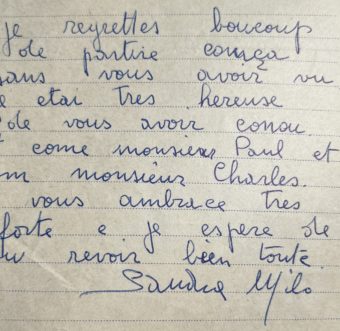 je regrettes boucoup
de partire comça
sans vous avoir vu
e etai tres hereuse
de vous avoir conou.
come monsieur Paul et
m monsieur Charles.
vous ambrace tres
forte e je espere de
revoir bien touté.
Sandra Milo